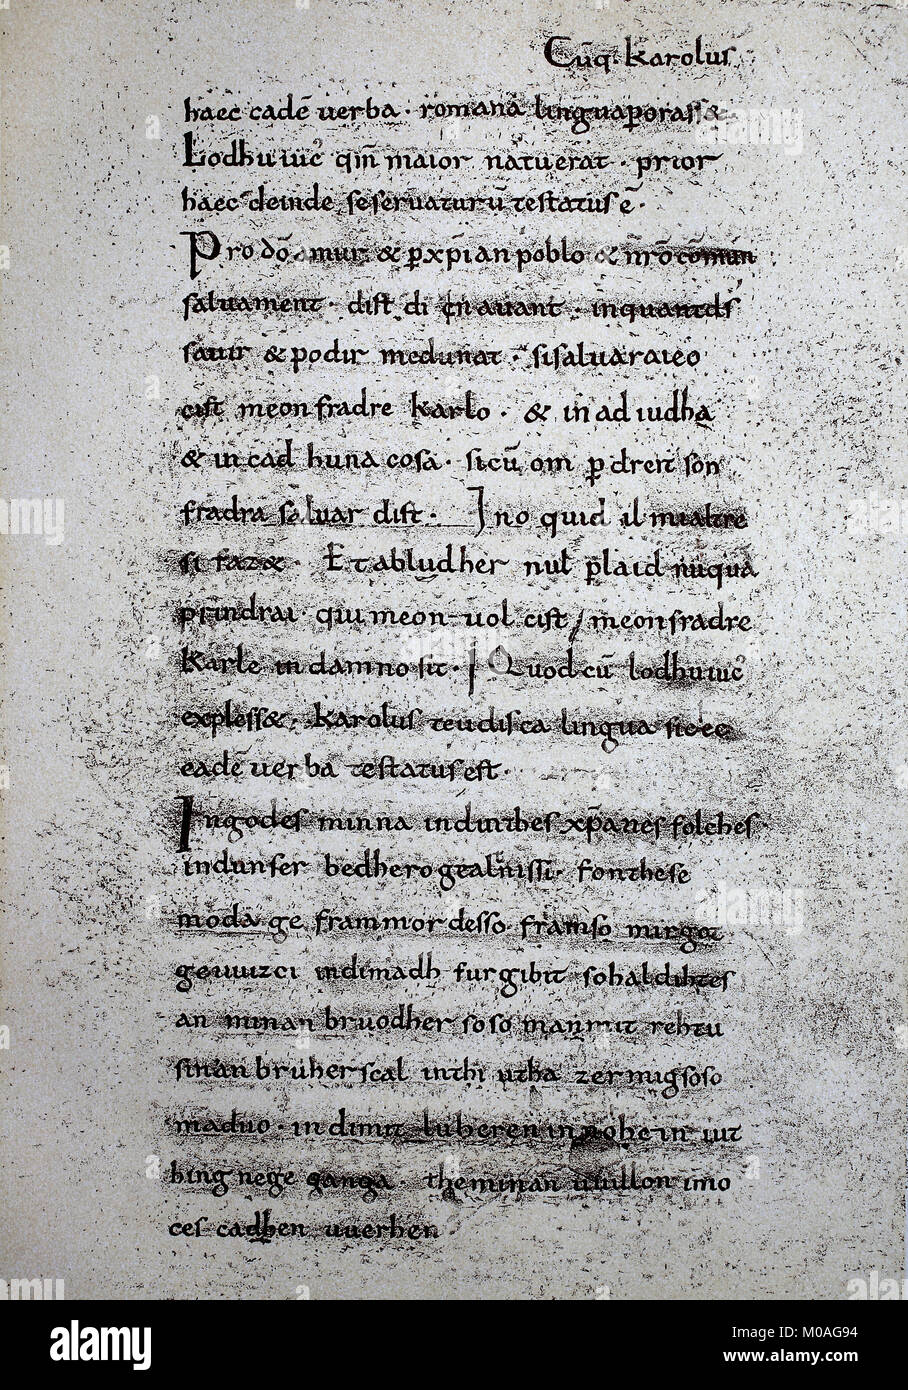 Cūq. karolus
haec cadē uerba · romana linguaꝑorass&.
Lodhuuic̓ qm̄ maior natuerat · prior
haec deinde seseruaturū testatus ē·
Pro dō amur & ꝑxp̄ian poblo & nr̄o cōmun
saluament · dist di en auant · inquantds̄
sauir & podir medunat · sisaluaraieo
cist meon fradre karlo · & in ad iudha
& in cad huna cosa · sicū om ꝑdreit son
fradra saluar dist · Ino quid il mialtre
si faz&. Et abludher nul ꝑlaid nūquā
prindrai · qui meon uol cist / meonfradre
Karle in damno sit · Quodcū lodhuuic̓
expless& · karolus teudisca lingua sicec
eadē uerba testatus est ·
Ingodes minna indinthes xp̄anes folches
indunser bedhero gealtnissi · fonthese
moda ge frammordesso. framso mirgot
geuuizci indimadh furgibit sohaldihtes
an minan bruodher soso manmit rehtu
sinan bruher scal inthi utha zermigsoso
maduo · indimit luheren in nohein iut
hing nege ganga · theminan uuillon imo
ces cadhen uuerhen ·
alamy
Image ID: M0AG94
www.alamy.com